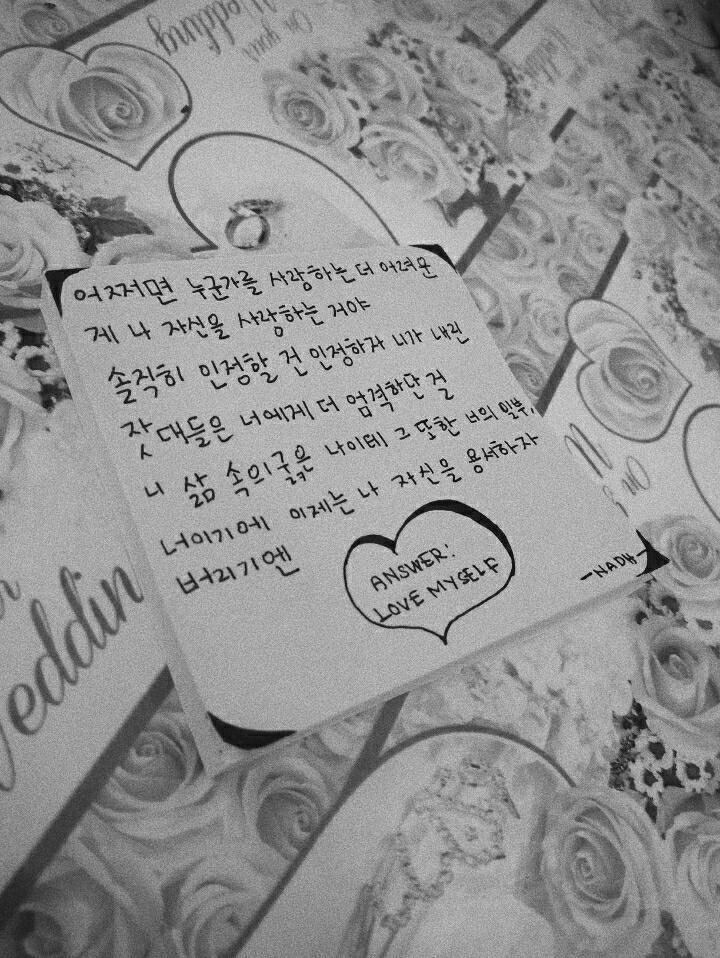 Wedding
On your
어쩌면 누군가를 사랑하는 더 어려운
게 나 자신을 사랑하는 거야
솔직히 인정할 건 인정하자 니가 내린
잣대들은 너에게 더 엄격하단 걸
니 삶 속의 굵은 나이테 그 또한 너의 일부,
너이기에 이제는 나 자신을 용서하자
버리기엔
ANSWER:
LOVE MYSELF
-NADH-
Weddin